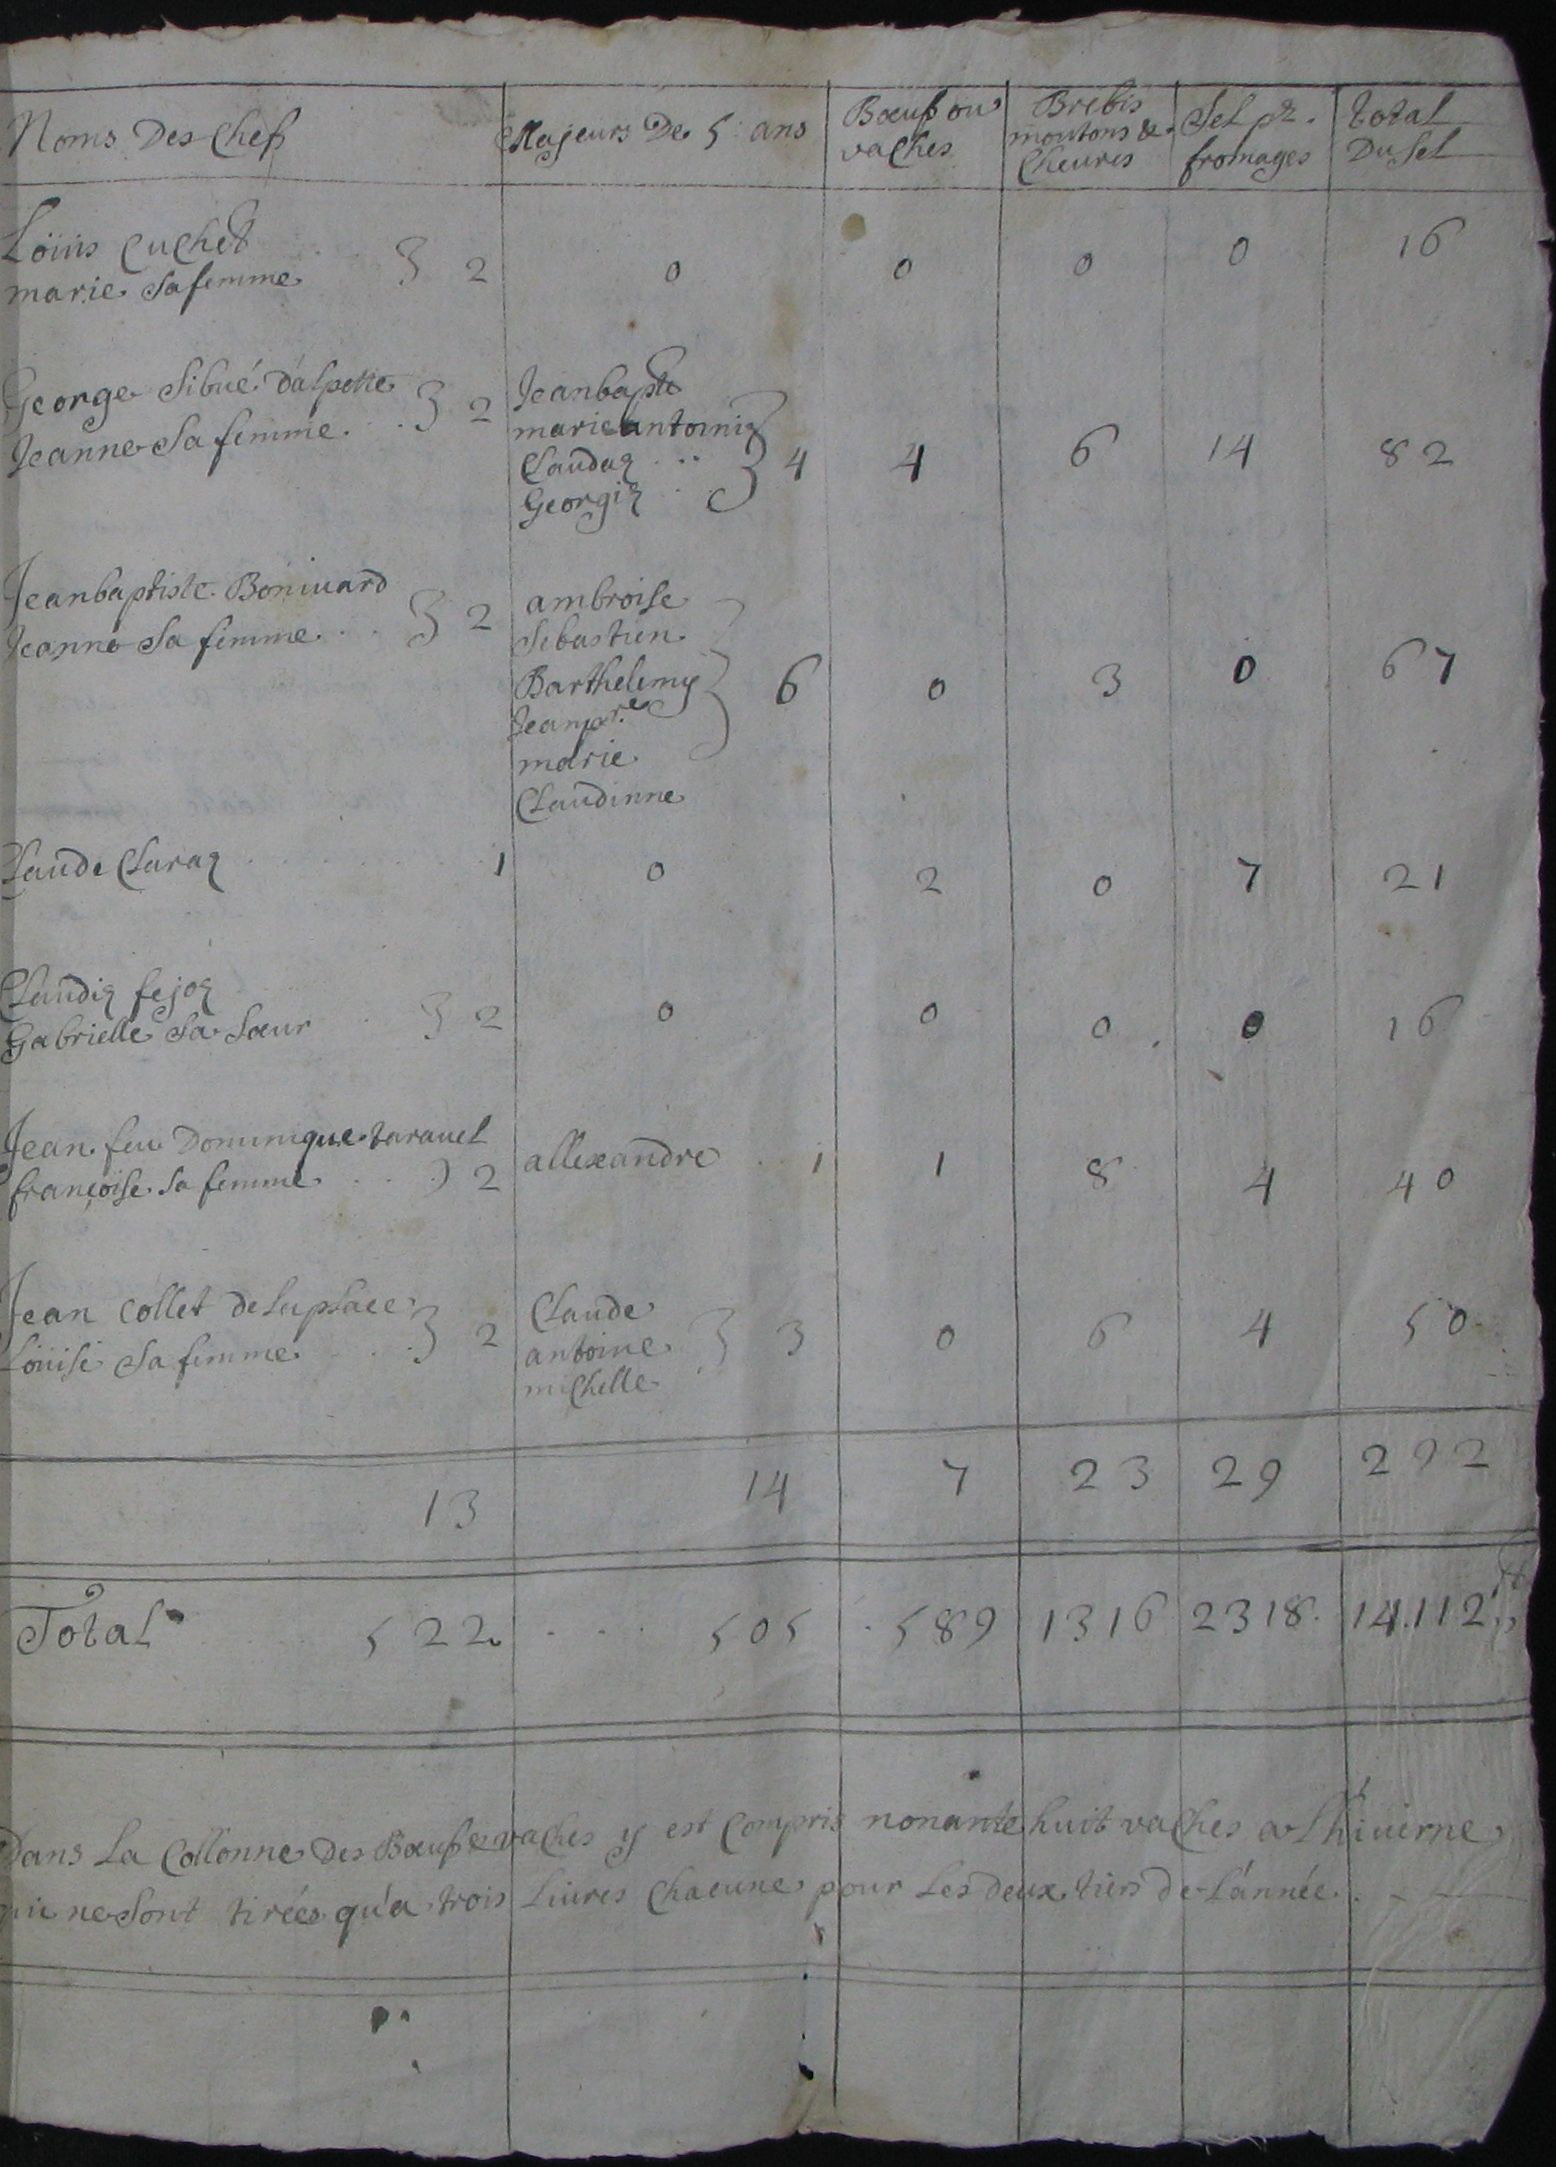 Noms Des Chefs | Majeurs De 5 ans | Bœufs ou vaches | Brebis moutons & Cheures | Sel pr. fromages | total Du Sel
Loüis Cuchet
marie sa femme 2 | 0 | 0 | 0 | 0 | 16
George Sibué d'alpette
Jeanne sa femme 2 | Jeanbapte
marie antoinie
Claudaz
Georgiz 4 | 4 | 6 | 14 | 82
Jeanbaptiste Boniuard
Jeanne sa femme 2 | ambroise
Sebastien
Barthelemy
Jean pre
marie
Claudinne 6 | 0 | 3 | 0 | 67
Claude Claraz 1 | 0 | 2 | 0 | 7 | 21
Claudiz fejoz
Gabrielle sa sœur 2 | 0 | 0 | 0 | 0 | 16
Jean feu Dominique tarauel
françoise sa femme 2 | allexandre 1 | 1 | 8 | 4 | 40
Jean Collet de laplace
Loüise sa femme 2 | Claude
antoine
michelle 3 | 0 | 6 | 4 | 50
13 | 14 | 7 | 23 | 29 | 292
Total 522 | 505 | 589 | 1316 | 2318 | 14.112
Dans La Collonne Des Bœufs & vaches y est Compris nonante huit vaches a L'hiuerne
qui ne sont tirées qu'a trois Liures Chacune pour Les deux tiers de L'année